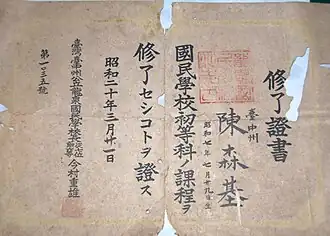 修了證書
臺中州
陳森基
昭和七年七月十九日生
國民學校初等科ノ課程ヲ
修了セシコトヲ證ス
昭和二十年三月廿一日
臺灣臺中州公立龍泉國民學校長
今村重雄
第一〇三五號